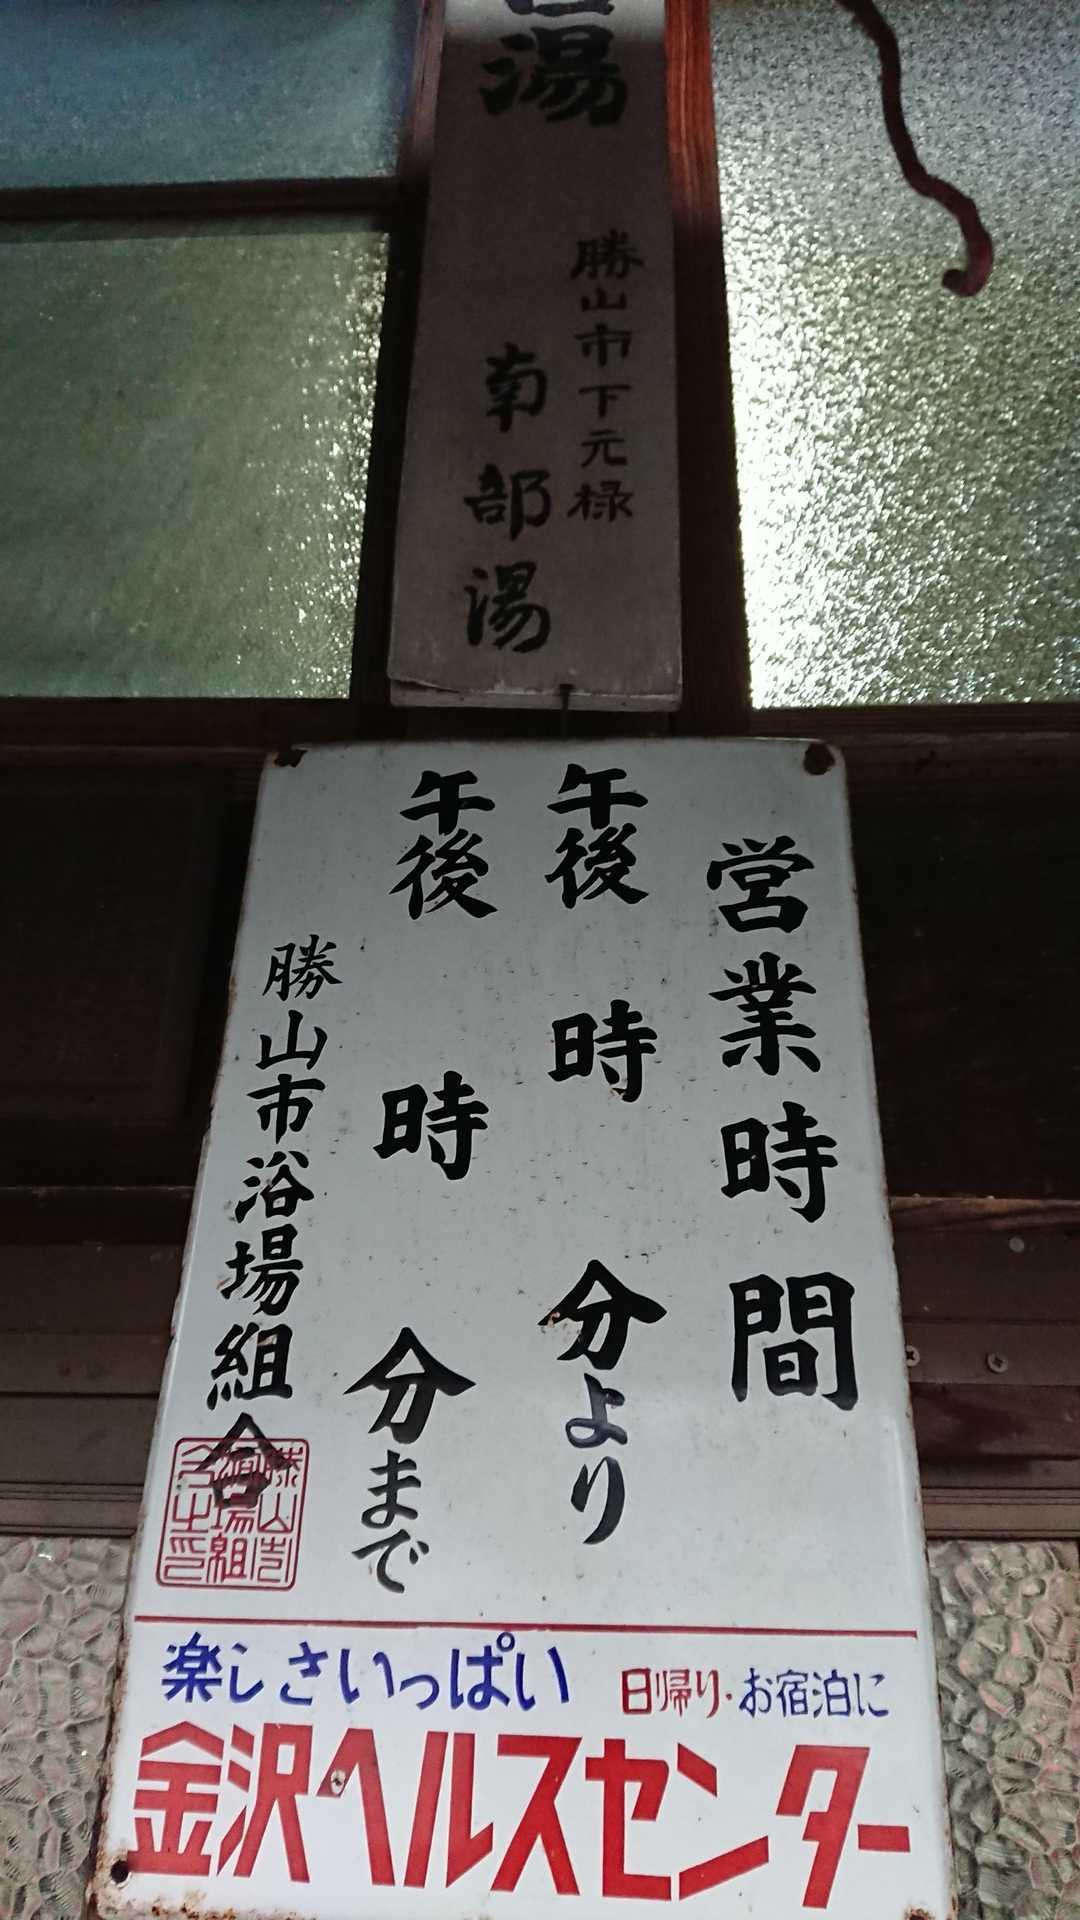 湯
勝山市下元禄
南部湯
営業時間
午後 時 分より
午後 時 分まで
勝山市浴場組合
楽しさいっぱい
日帰り・お宿泊に
金沢ヘルスセンター